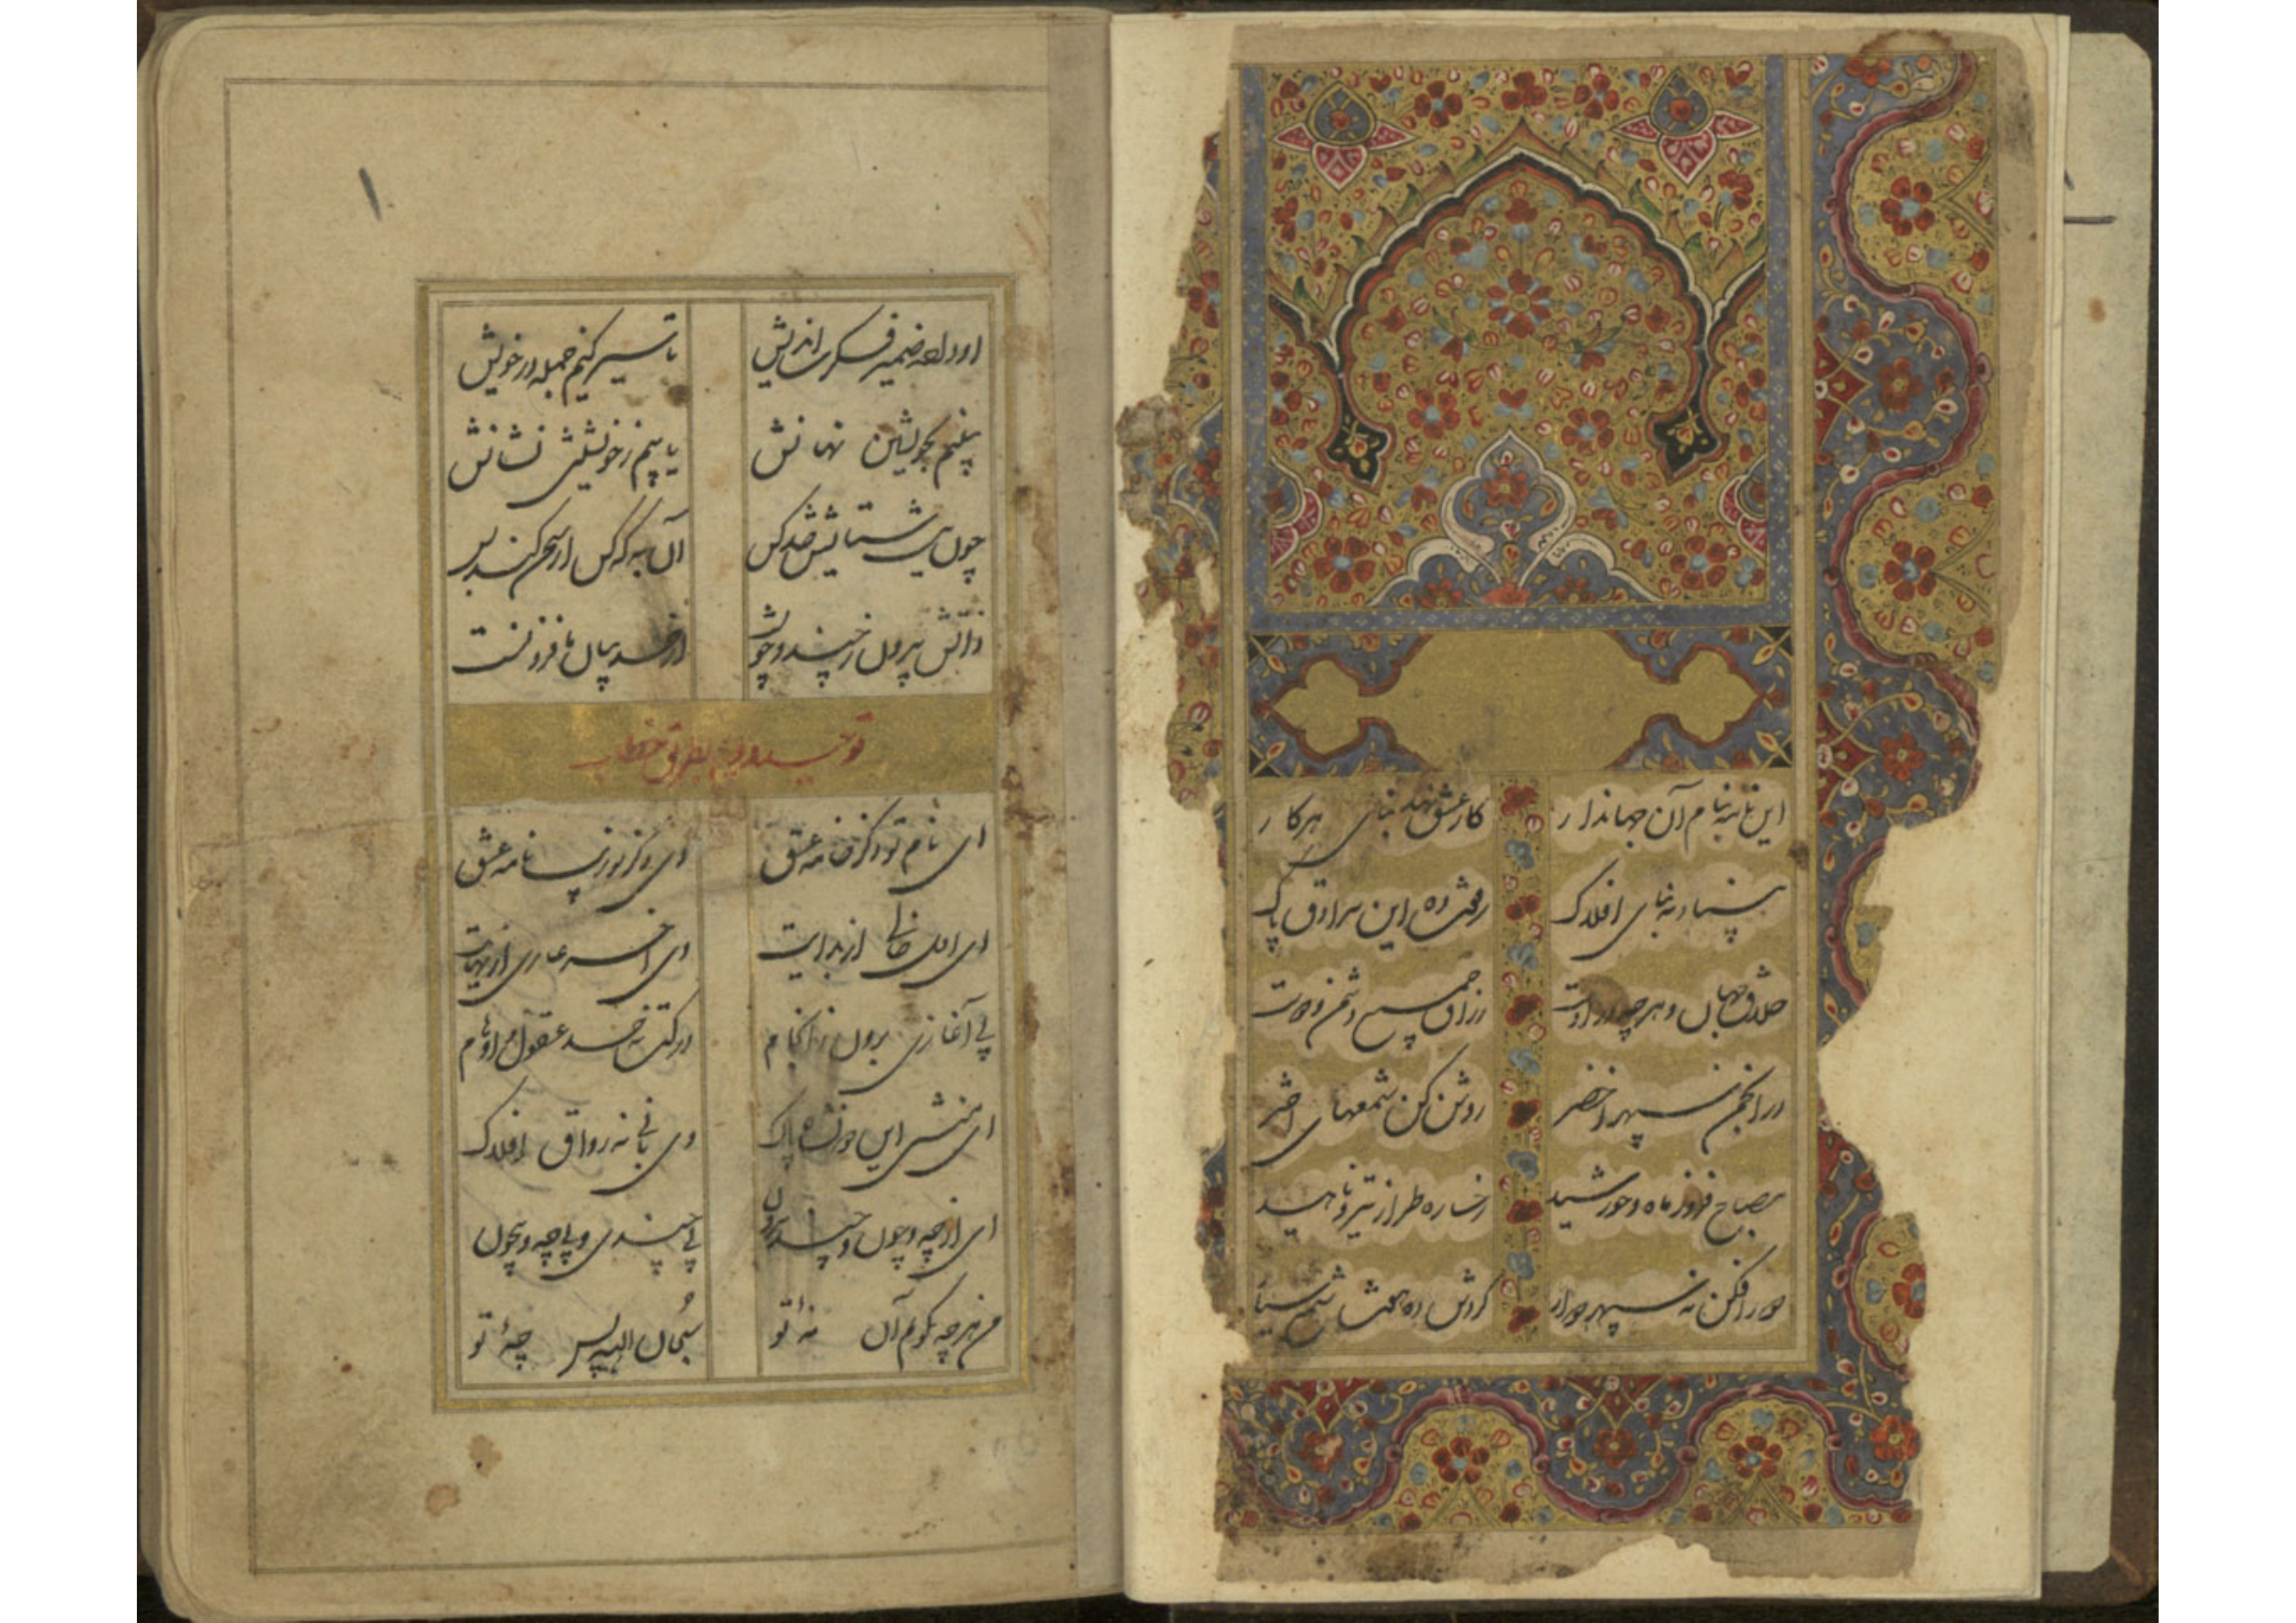 این نامه بنام آن جهاندار کار عشق نهد بنای هر کار
بنیاد نه بنای افلاک رفعت ده این رواق پاک
خلاق جهان و هر چه در اوست رزاق جمیع دشمن و دوست
در انجمن سپهر اخضر روشن کن شمعهای اختر
مصباح فروز ماه و خورشید رخساره طراز تیر و ناهید
نه سپهر دوار گردش ده هفت
ضمیر فکرت اندیش تا سیر کنیم جمله در خویش
بینیم بخویشتن نهانش یابیم ز خویشتن نشانش
چون نیست ستایشش حد کس آن به که کس از سخن کند بس
ذاتش بیرون ز چند و چونست از حد بیان ما فزونست
توحید دویم بطریق خطاب
ای نام تو ذکر خامه عشق وی ذکر تو زیب نامه عشق
ای اول خالی از بدایت وی آخر عاری از نهایت
بی آغازی برون ز انجام درکت نه حد عقول و اوهام
ای منشی این پاک وی بانی نه رواق افلاک
ای از چه و چون و چند بیرون بی چندی و بی چه و بیچون
من هر چه بگویم آن نهٔ تو سبحان الله پس چهٔ تو